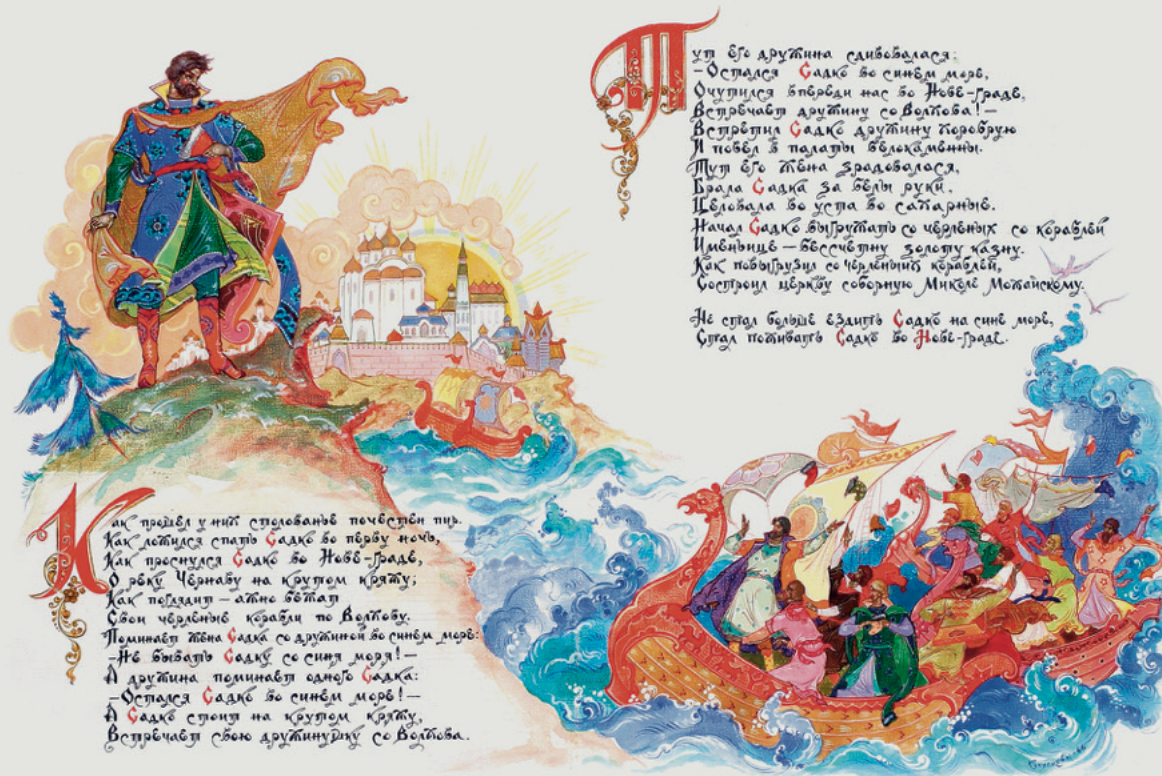 Как прошел у них столованье почестен пир.
Как ложился спать Садко во перву ночь,
Как проснулся Садко во Нове-граде,
О реку Чернаву на крутом кряжу;
Как поглядит — ажно бежат
Свои черленые корабли по Волхову.
Поминает жена Садка со дружиной во синем море:
-Не бывать Садку со синя моря!—
А дружина поминает одного Садка:
—Остался Садко во синем море!—
А Садко стоит на крутом кряжу,
Встречает свою дружинушку со Волхова.
Тут его дружина сдивовалася:
-Остался Садко во синем море,
Очутился впереди нас во Нове-граде,
Встречает дружину со Волхова!—
Встретил Садко дружину хоробрую
И повел в палаты белокаменны.
Тут его жена зрадовалася,
Брала Садка за белы руки,
Целовала во уста во сахарные.
Начал Садко выгружать со черленых со кораблей
Именьице — бессчетну золоту казну.
Как повыгрузил со черленыих кораблей,
Состроил церкву соборную Миколе Можайскому.
Не стал больше ездить Садко на сине море,
Стал поживать Садко во Нове-граде.